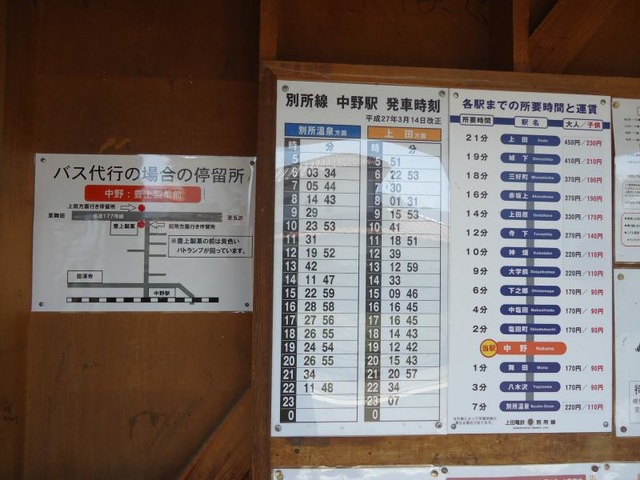 バス代行の場合の停留所
中野：豊上製菓前
上田方面行き停留所
至舞田
県道177号線
至五加
豊上製菓
別所方面行き停留所
※豊上製菓の前は黄色い
パトランプが回っています。
龍澤寺
中野駅
別所線 中野駅 発車時刻
平成27年3月14日改正
別所温泉方面
時 分
5
6 03 34
7 05 44
8 14 43
9 29
10 23 53
11 31
12 19 52
13 42
14 11 47
15 22 59
16 28 58
17 27 56
18 26 55
19 24 54
20 26 55
21 34
22 11 48
23
0
上田方面
時 分
5 51
6 22 53
7 30
8 01 31
9 15 53
10 41
11 18 51
12 39
13 12 59
14 33
15 09 46
16 16 45
17 16 45
18 14 43
19 12 42
20 15 43
21 20 57
22 34
23 07
0
各駅までの所要時間と運賃
所要時間 駅名 大人／子供
21分 上田 Ueda 450円／230円
19分 城下 Shiroshita 410円／210円
18分 三好町 Miyoshicho 370円／190円
16分 赤坂上 Akasakaue 370円／190円
14分 上田原 Uedahara 330円／170円
12分 寺下 Terashita 270円／140円
10分 神畑 Kabatake 220円／110円
9分 大学前 Daigakumae 220円／110円
6分 下之郷 Shimonogo 170円／90円
4分 中塩田 Nakashioda 170円／90円
2分 塩田町 Shiodamachi 170円／90円
当駅 中野 Nakano
1分 舞田 Maita 170円／90円
3分 八木沢 Yagisawa 170円／90円
7分 別所温泉 Bessho-Onsen 220円／110円
上田電鉄 別所線